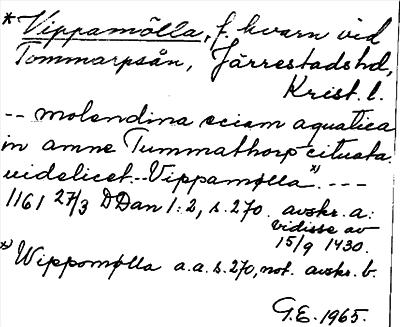 * Vippamölla, f. kvarn vid
Tommarpsån, Järrestads hd,
Krist. l.
-- molendina eciam aquatica
in amne Tummathorp cituata
uidelicet -- Vippamølla x) . ---
1161 27/3 DDan 1:2, s. 270. avskr. a:
vidisse av
15/9 1430.
x) Wippomølla a.a. s. 270, not. avskr. b.
G.E. 1965.